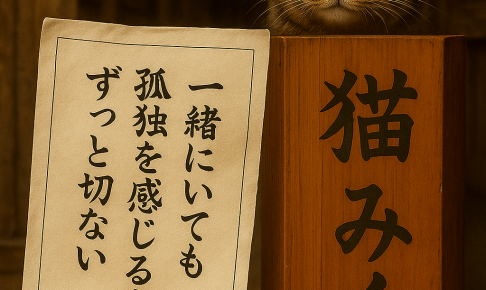 猫み
一緒にいても
孤独を感じる
ずっと切ない